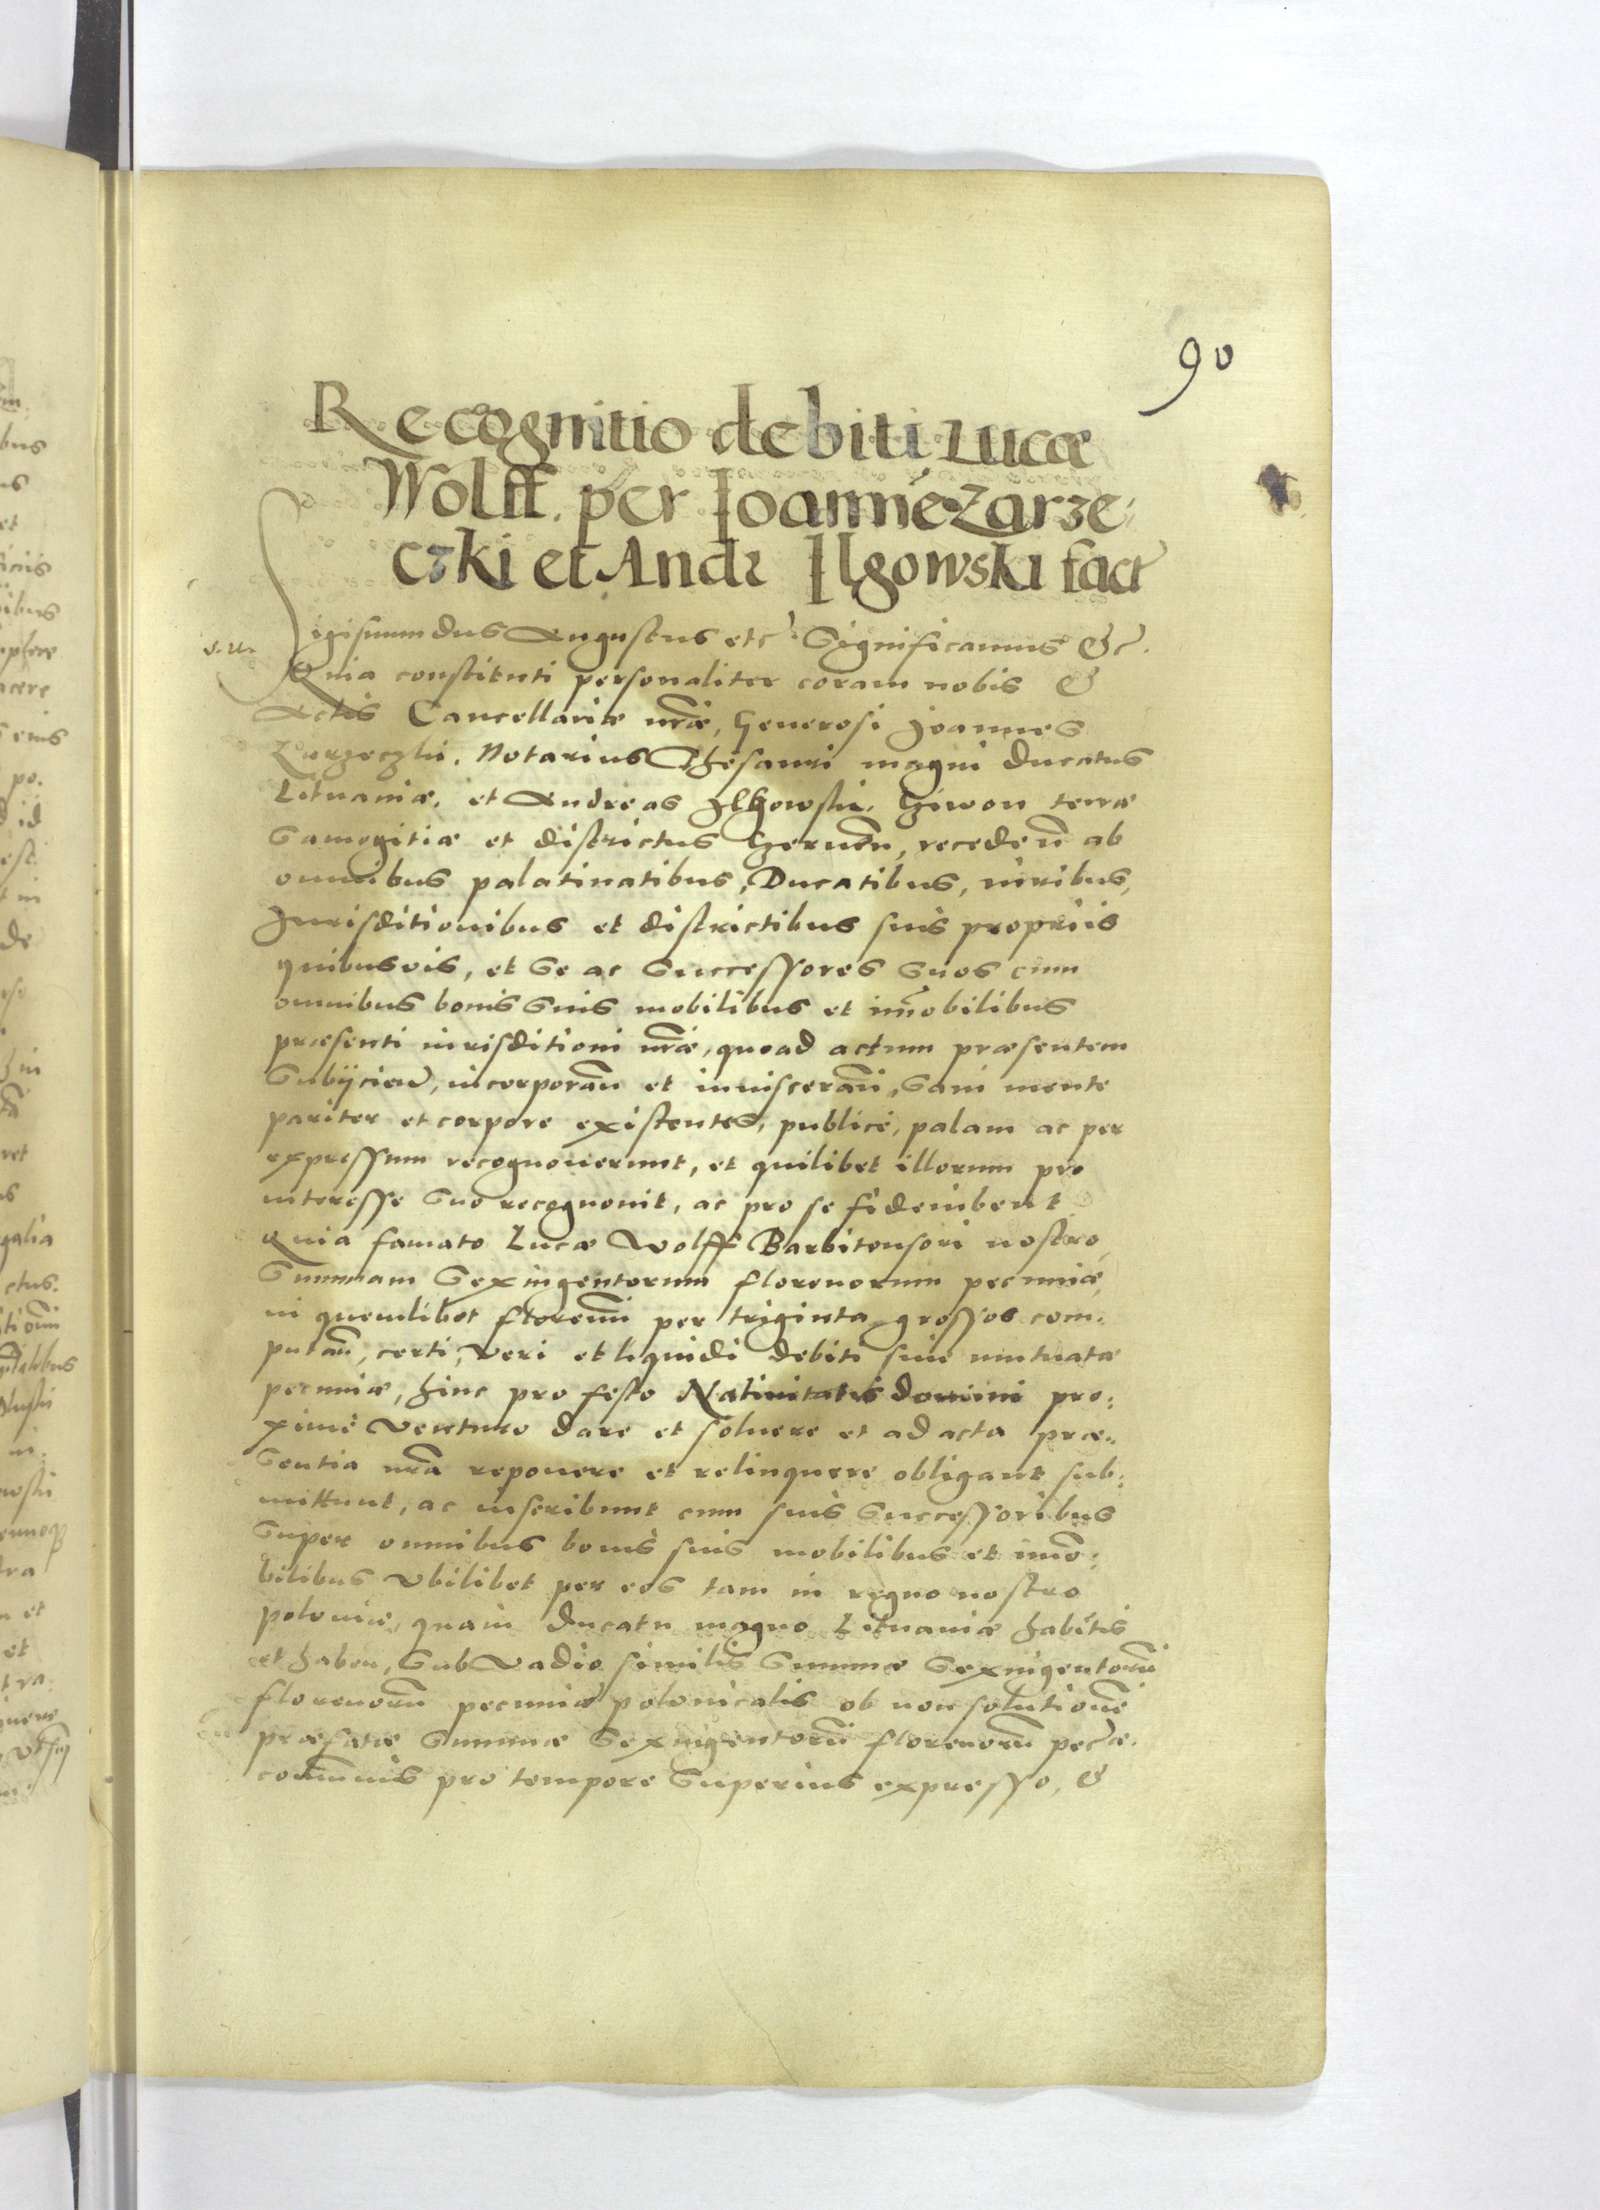 90
Recognitio debiti Lucæ
Wolff. per Joannē Zarze-
czki et Andr Ilgowski fact
Sigismundus Augustus etc. Significamus &c.
Quia constituti personaliter coram nobis &
Actis Cancellariæ nrāe, Generosi Joannes
Zarzeczki. Notarius Thesauri magni Ducatus
Lituaniæ. et Andreas Ilgowski. Ciwon terræ
Samogitiæ et districtus recedeñ ab
omnibus palatinatibus, Ducatibus, iuribus,
Jurisditionibus et districtibus suis propriis
quibusvis, et se ac Successores suos cum
omnibus bonis suis mobilibus et im̄obilibus
præsenti iurisditioni nrāe, quoad actum præsentem
Subijcieñ, incorporañ et inuiscerañ, Sani mente
pariter et corpore existentes, publicè, palam ac per
expressum recognouerunt, et quilibet illorum pro
interesse suo recognouit, ac pro se fideiubent
Quia famato Lucæ Wolff Barbitonsori nostro,
Summam Sexingentorum florenorum pecuniæ,
in quemlibet floreñ per triginta grossos com-
putañ, certi, veri et liquidi debiti siue mutuatæ
pecuniæ, hinc pro festo Natiuitatis domini pro-
ximè venturo dare et soluere et ad acta præ-
sentia nrā reponere et relinquere obligant sub-
mittunt, ac inscribunt cum suis Successoribus
Super omnibus bonis suis mobilibus et im̄o-
bilibus vbilibet per eos tam in regno nostro
poloniæ, quam Ducatu magno Lituaniæ habitis
et habeñ, sub vadio similis Summæ Sexingentorū
florenorū pecuniæ polonicalis ob non solutionē
præfatæ Summæ Sexingentorū florenorū pecæ.
com̄unis pro tempore Superius expresso, &